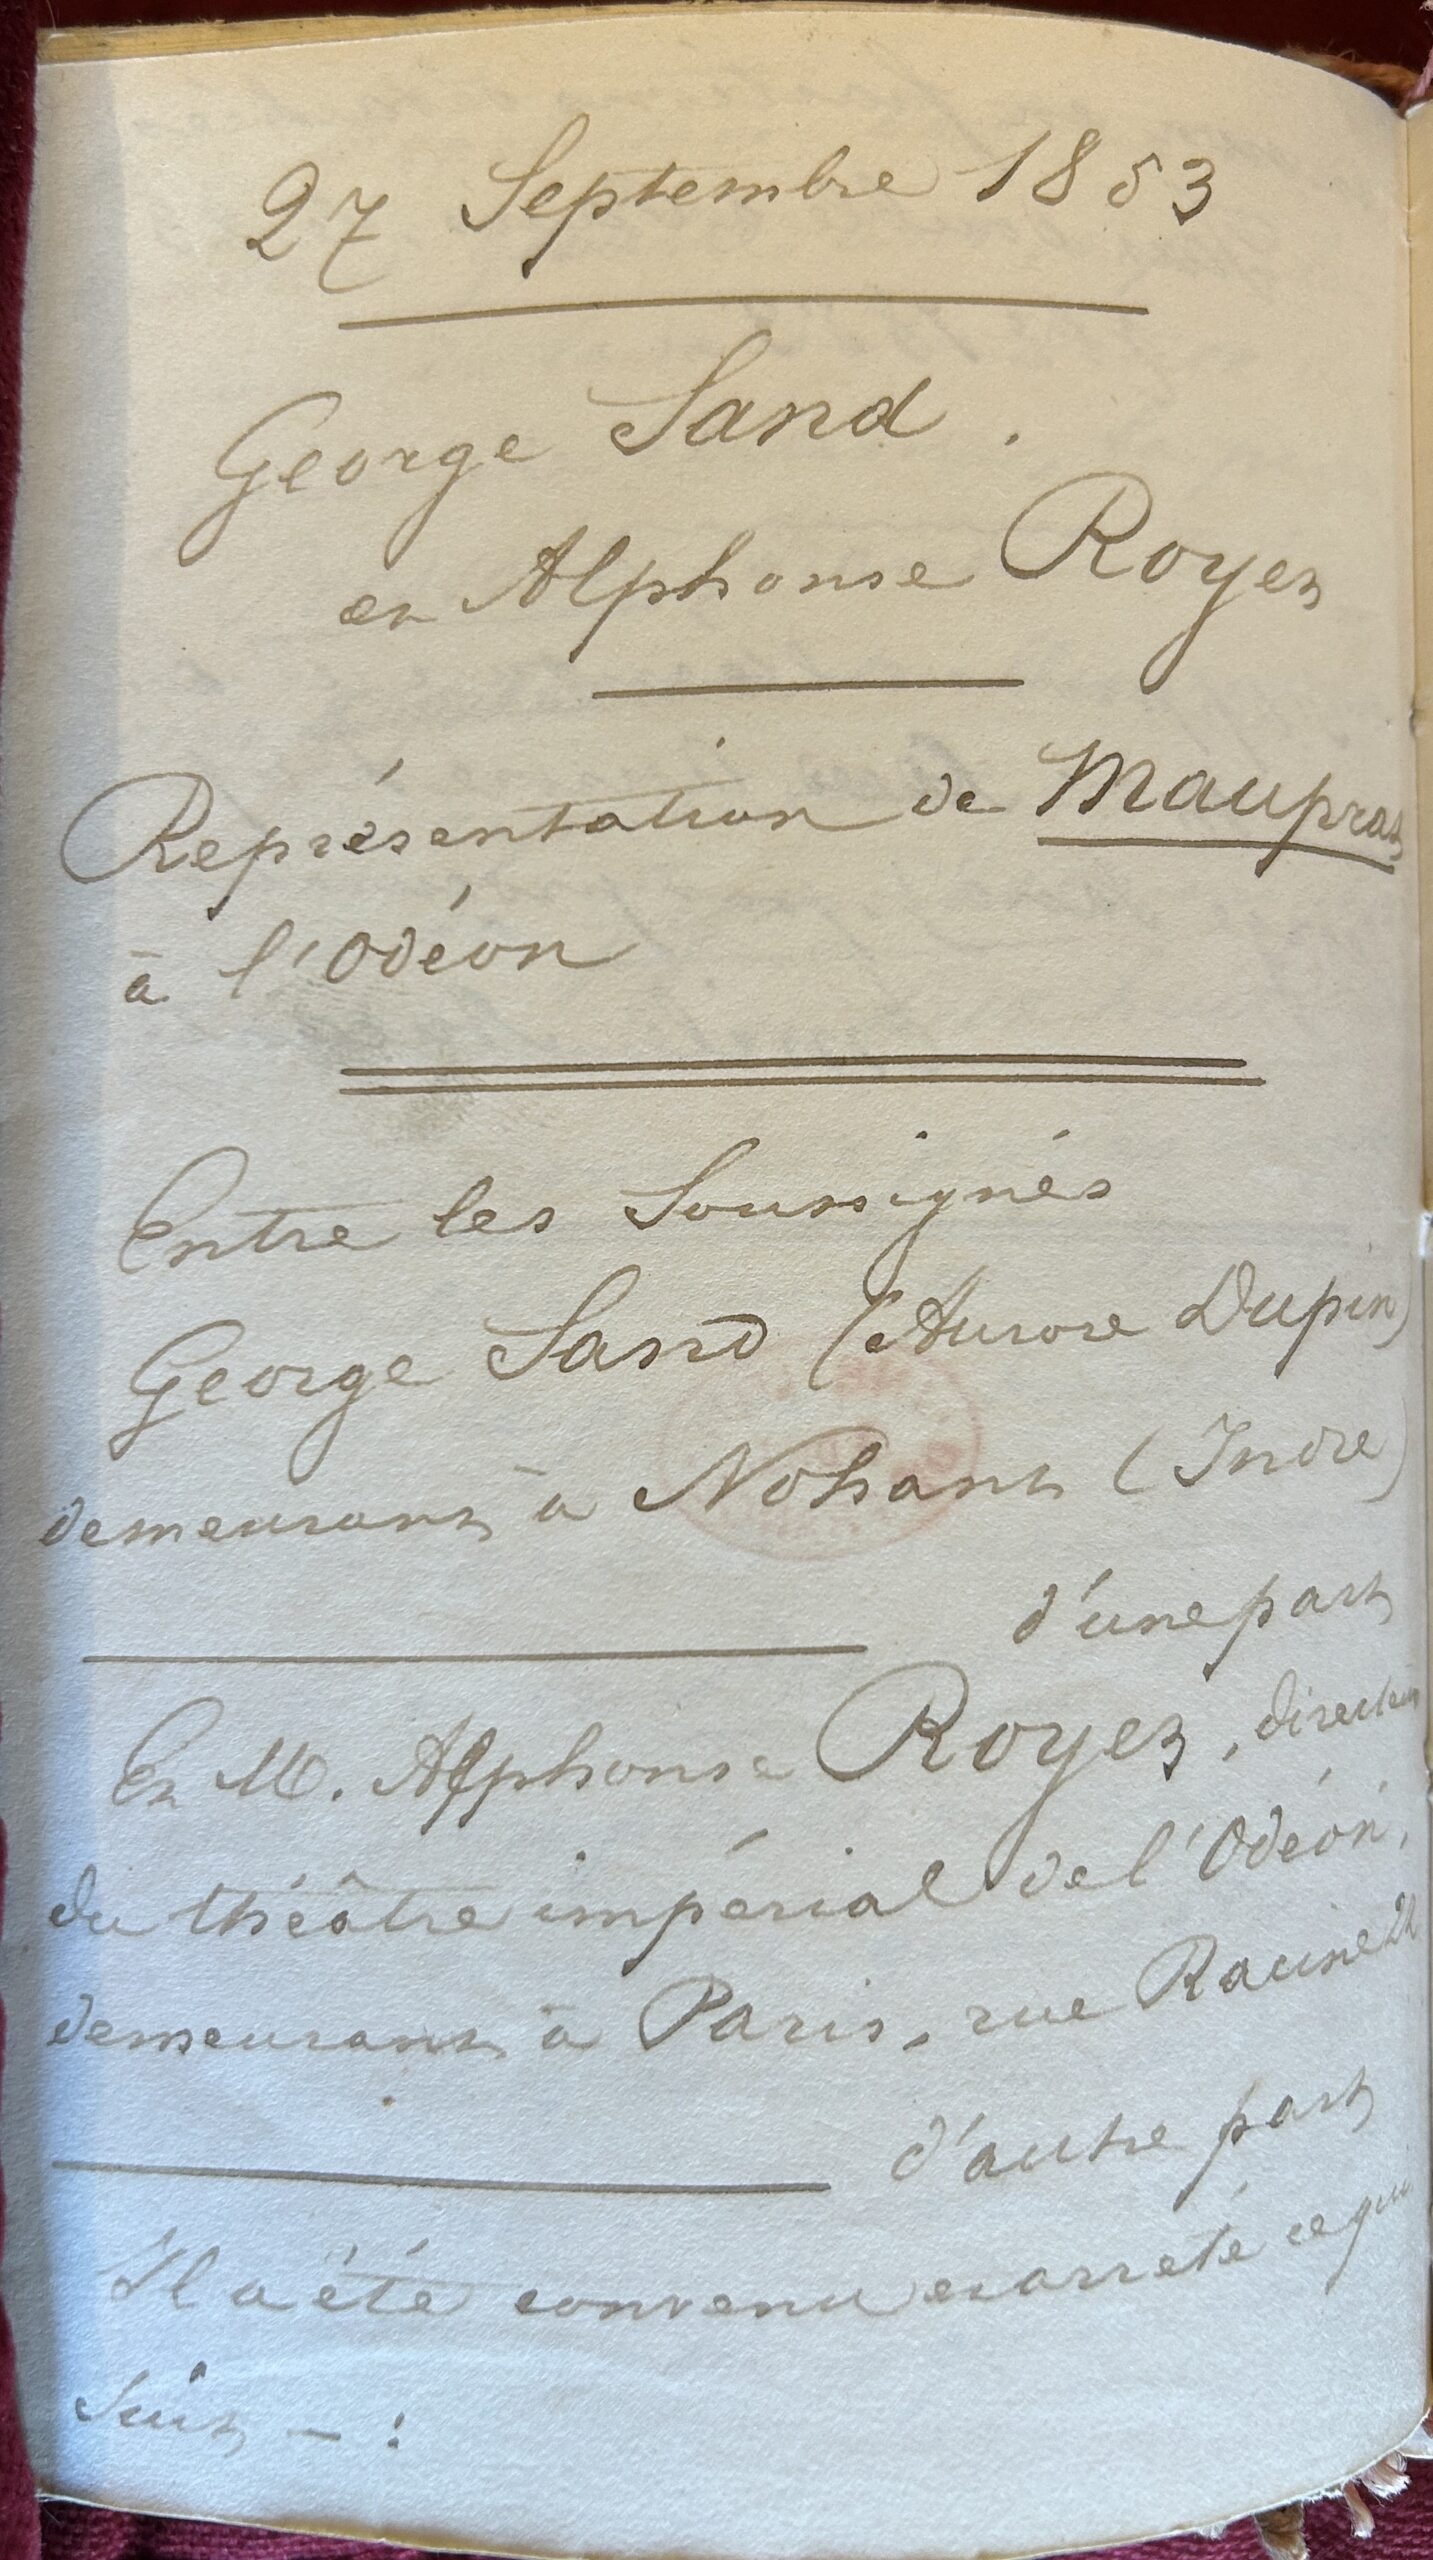 27 Septembre 1853
George Sand.
et Alphonse Royer
Représentation de Mauprat
à l'Odéon
Entre les Soussignés
George Sand (Aurore Dupin)
demeurant à Nohant (Indre)
d'une part
Et M. Alphonse Royer, directeur
du théâtre impérial de l'Odéon,
demeurant à Paris, rue Racine
d'autre part
Il a été convenu et arrêté ce qui
suit — :